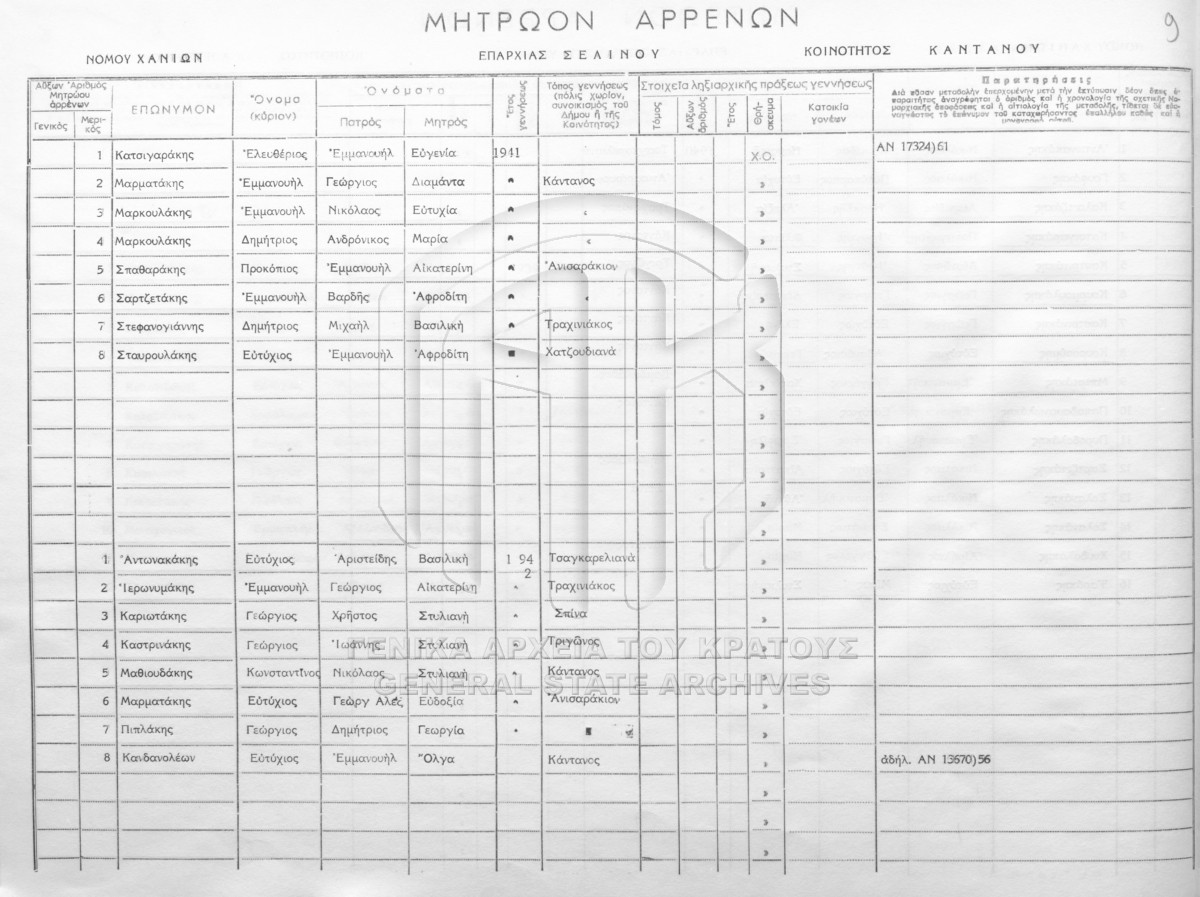 ΜΗΤΡΩΟΝ ΑΡΡΕΝΩΝ
9
ΝΟΜΟΥ ΧΑΝΙΩΝ ΕΠΑΡΧΙΑΣ ΣΕΛΙΝΟΥ ΚΟΙΝΟΤΗΤΟΣ ΚΑΝΤΑΝΟΥ
Αὔξων Ἀριθμὸς Μητρώου ἀρρένων
Γενικὸς Μερικὸς
ΕΠΩΝΥΜΟΝ
Ὄνομα (κύριον)
Ὀνόματα
Πατρὸς Μητρὸς
Ἔτος γεννήσεως
Τόπος γεννήσεως (πόλις χωρίον, συνοικισμὸς τοῦ Δήμου ἢ τῆς Κοινότητος)
Στοιχεῖα ληξιαρχικῆς πράξεως γεννήσεως
Τόμος Αὔξων ἀριθμὸς Ἔτος Θρήσκευμα Κατοικία γονέων
Παρατηρήσεις
1 Κατσιγαράκης Ἐλευθέριος Ἐμμανουὴλ Εὐγενία 1941 Χ.Ο. ΑΝ 17324)61
2 Μαρματάκης Ἐμμανουὴλ Γεώργιος Διαμάντα " Κάντανος »
3 Μαρκουλάκης Ἐμμανουὴλ Νικόλαος Εὐτυχία " « »
4 Μαρκουλάκης Δημήτριος Ανδρόνικος Μαρία " « »
5 Σπαθαράκης Προκόπιος Ἐμμανουὴλ Αἰκατερίνη " Ἀνισαράκιον »
6 Σαρτζετάκης Ἐμμανουὴλ Βαρδῆς Ἀφροδίτη " « »
7 Στεφανογιάννης Δημήτριος Μιχαὴλ Βασιλικὴ " Τραχινιάκος »
8 Σταυρουλάκης Εὐτύχιος Ἐμμανουὴλ Ἀφροδίτη " Χατζουδιανά »
»
»
»
»
»
»
1 Ἀντωνακάκης Εὐτύχιος Ἀριστείδης Βασιλικὴ 1942 Τσαγκαρελιανὰ »
2 Ἱερωνυμάκης Ἐμμανουὴλ Γεώργιος Αἰκατερίνη " Τραχινιάκος »
3 Καριωτάκης Γεώργιος Χρῆστος Στυλιανὴ " Σπίνα »
4 Καστρινάκης Γεώργιος Ἰωάννης Στυλιανὴ " Τριγῶνος »
5 Μαθιουδάκης Κωνσταντῖνος Νικόλαος Στυλιανὴ " Κάντανος »
6 Μαρματάκης Εὐτύχιος Γεὼργ Αλέξ Εὐδοξία " Ἀνισαράκιον »
7 Πιπλάκης Γεώργιος Δημήτριος Γεωργία " " »
8 Κανδανολέων Εὐτύχιος Ἐμμανουὴλ Ὄλγα Κάντανος » ἀδήλ. ΑΝ 13670)56
»
»
»
ΓΕΝΙΚΑ ΑΡΧΕΙΑ ΤΟΥ ΚΡΑΤΟΥΣ
GENERAL STATE ARCHIVES